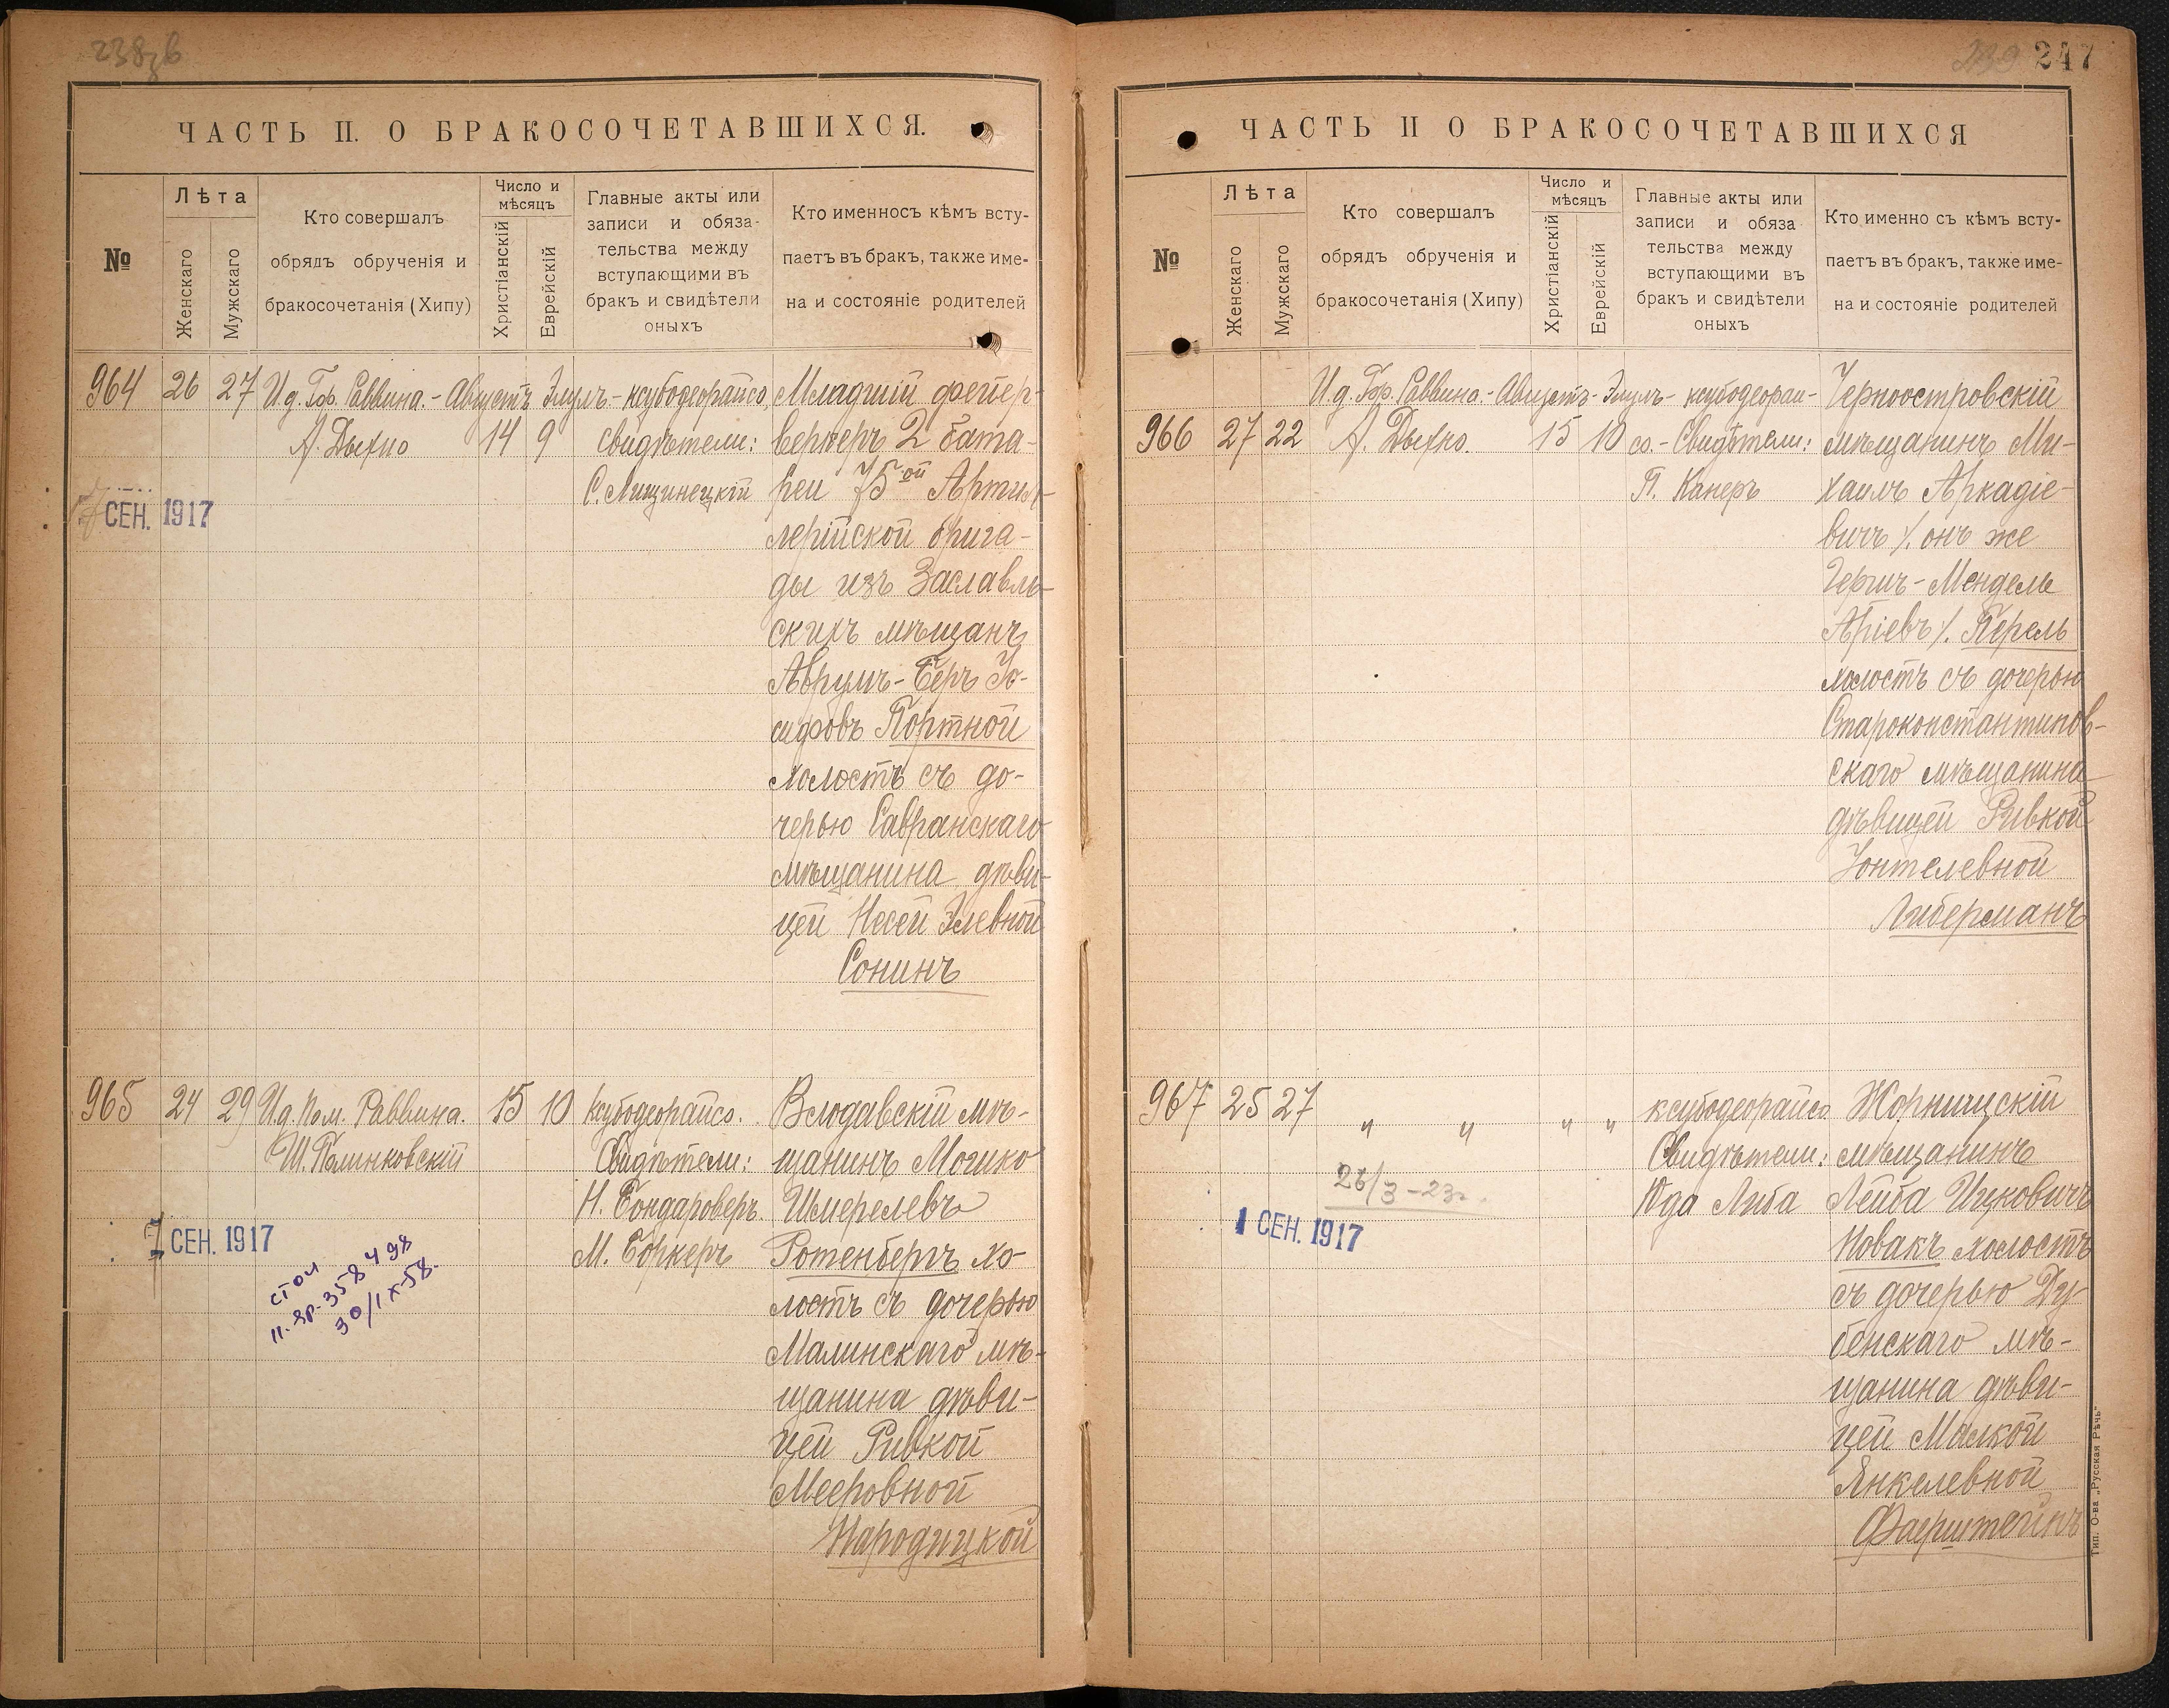 ЧАСТЬ II. О БРАКОСОЧЕТАВШИХСЯ.
№
Лѣта
Женскаго
Мужскаго
Кто совершалъ
обрядъ обрученія и
бракосочетанія (Хипу)
Число и
мѣсяцъ
Христіанскій
Еврейскій
Главные акты или
записи и обяза-
тельства между
вступающими въ
бракъ и свидѣтели
оныхъ
Кто именносъ кѣмъ всту-
паетъ въ бракъ, также име-
на и состояніе родителей
964 26 27
И.д. Гор. Раввина.-
А. Дыхно
Августъ
14
Элулъ-
9
ксубодеорайсо,
свидѣтели:
С. Лищинецкій
Младшій фейер-
веркеръ 2 бата-
реи 75ой Артил-
лерійской брига-
ды изъ Заславль-
скихъ мѣщанъ
Аврумъ-Беръ Іо-
сифовъ Портной
холостъ съ до-
черью Савранскаго
мѣщанина дѣви-
цей Несей Элевной
Сонинъ
СЕН. 1917
965 24 29
И.д. Пом. Раввина.
Ш. Полинковскій
15 10
Ксубодеорайсо.
Свидѣтели:
Н. Бондароверъ.
М. Боркеръ
Влодавскій мѣ-
щанинъ Мошко
Шмерелевъ
Ротенбергъ хо-
лостъ съ дочерью
Малинскаго мѣ-
щанина дѣви-
цей Ривкой
Мееровной
Народицкой
1 СЕН. 1917
358498
30/IX-58.
247
ЧАСТЬ II О БРАКОСОЧЕТАВШИХСЯ
№
Лѣта
Женскаго
Мужскаго
Кто совершалъ
обрядъ обрученія и
бракосочетанія (Хипу)
Число и
мѣсяцъ
Христіанскій
Еврейскій
Главные акты или
записи и обяза
тельства между
вступающими въ
бракъ и свидѣтели
оныхъ
Кто именно съ кѣмъ всту-
паетъ въ бракъ, также име-
на и состояніе родителей
966 27 22
И.д. Гор. Раввина.-
А. Дыхно.
Августъ-
15
Элулъ-
10
ксубодеорай-
со.- Свидѣтели:
П. Канеръ
Черноостровскій
мѣщанинъ Ми-
хаилъ Аркадіе-
вичъ /. онъ же
Гершъ-Мендель
Аріевъ /. Перель
холостъ съ дочерью
Староконстантинов-
скаго мѣщанина
дѣвицей Ривкой
Іонтелевной
Либерманъ
967 25 27
" "
" "
ксубодеорайсо.
Свидѣтели:
Юда Либа
Жорнищскій
мѣщанинъ
Лейба Ицковичъ
Новакъ холостъ
съ дочерью Ду-
бенскаго мѣ-
щанина дѣви-
цей Малкой
Янкелевной
Фаерштейнъ
26/3-23г.
1 СЕН. 1917
Тип. О-ва „Русская Рѣчь"